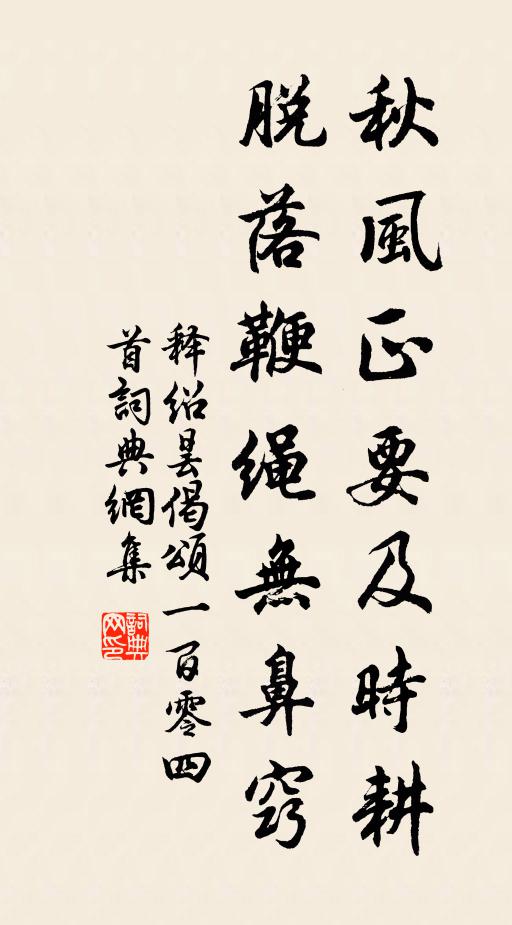 秋風正要及時耕
脫落鞭绳無鼻窍
释绍昙偈頌一百零四
首詞典網集
詞典
网印